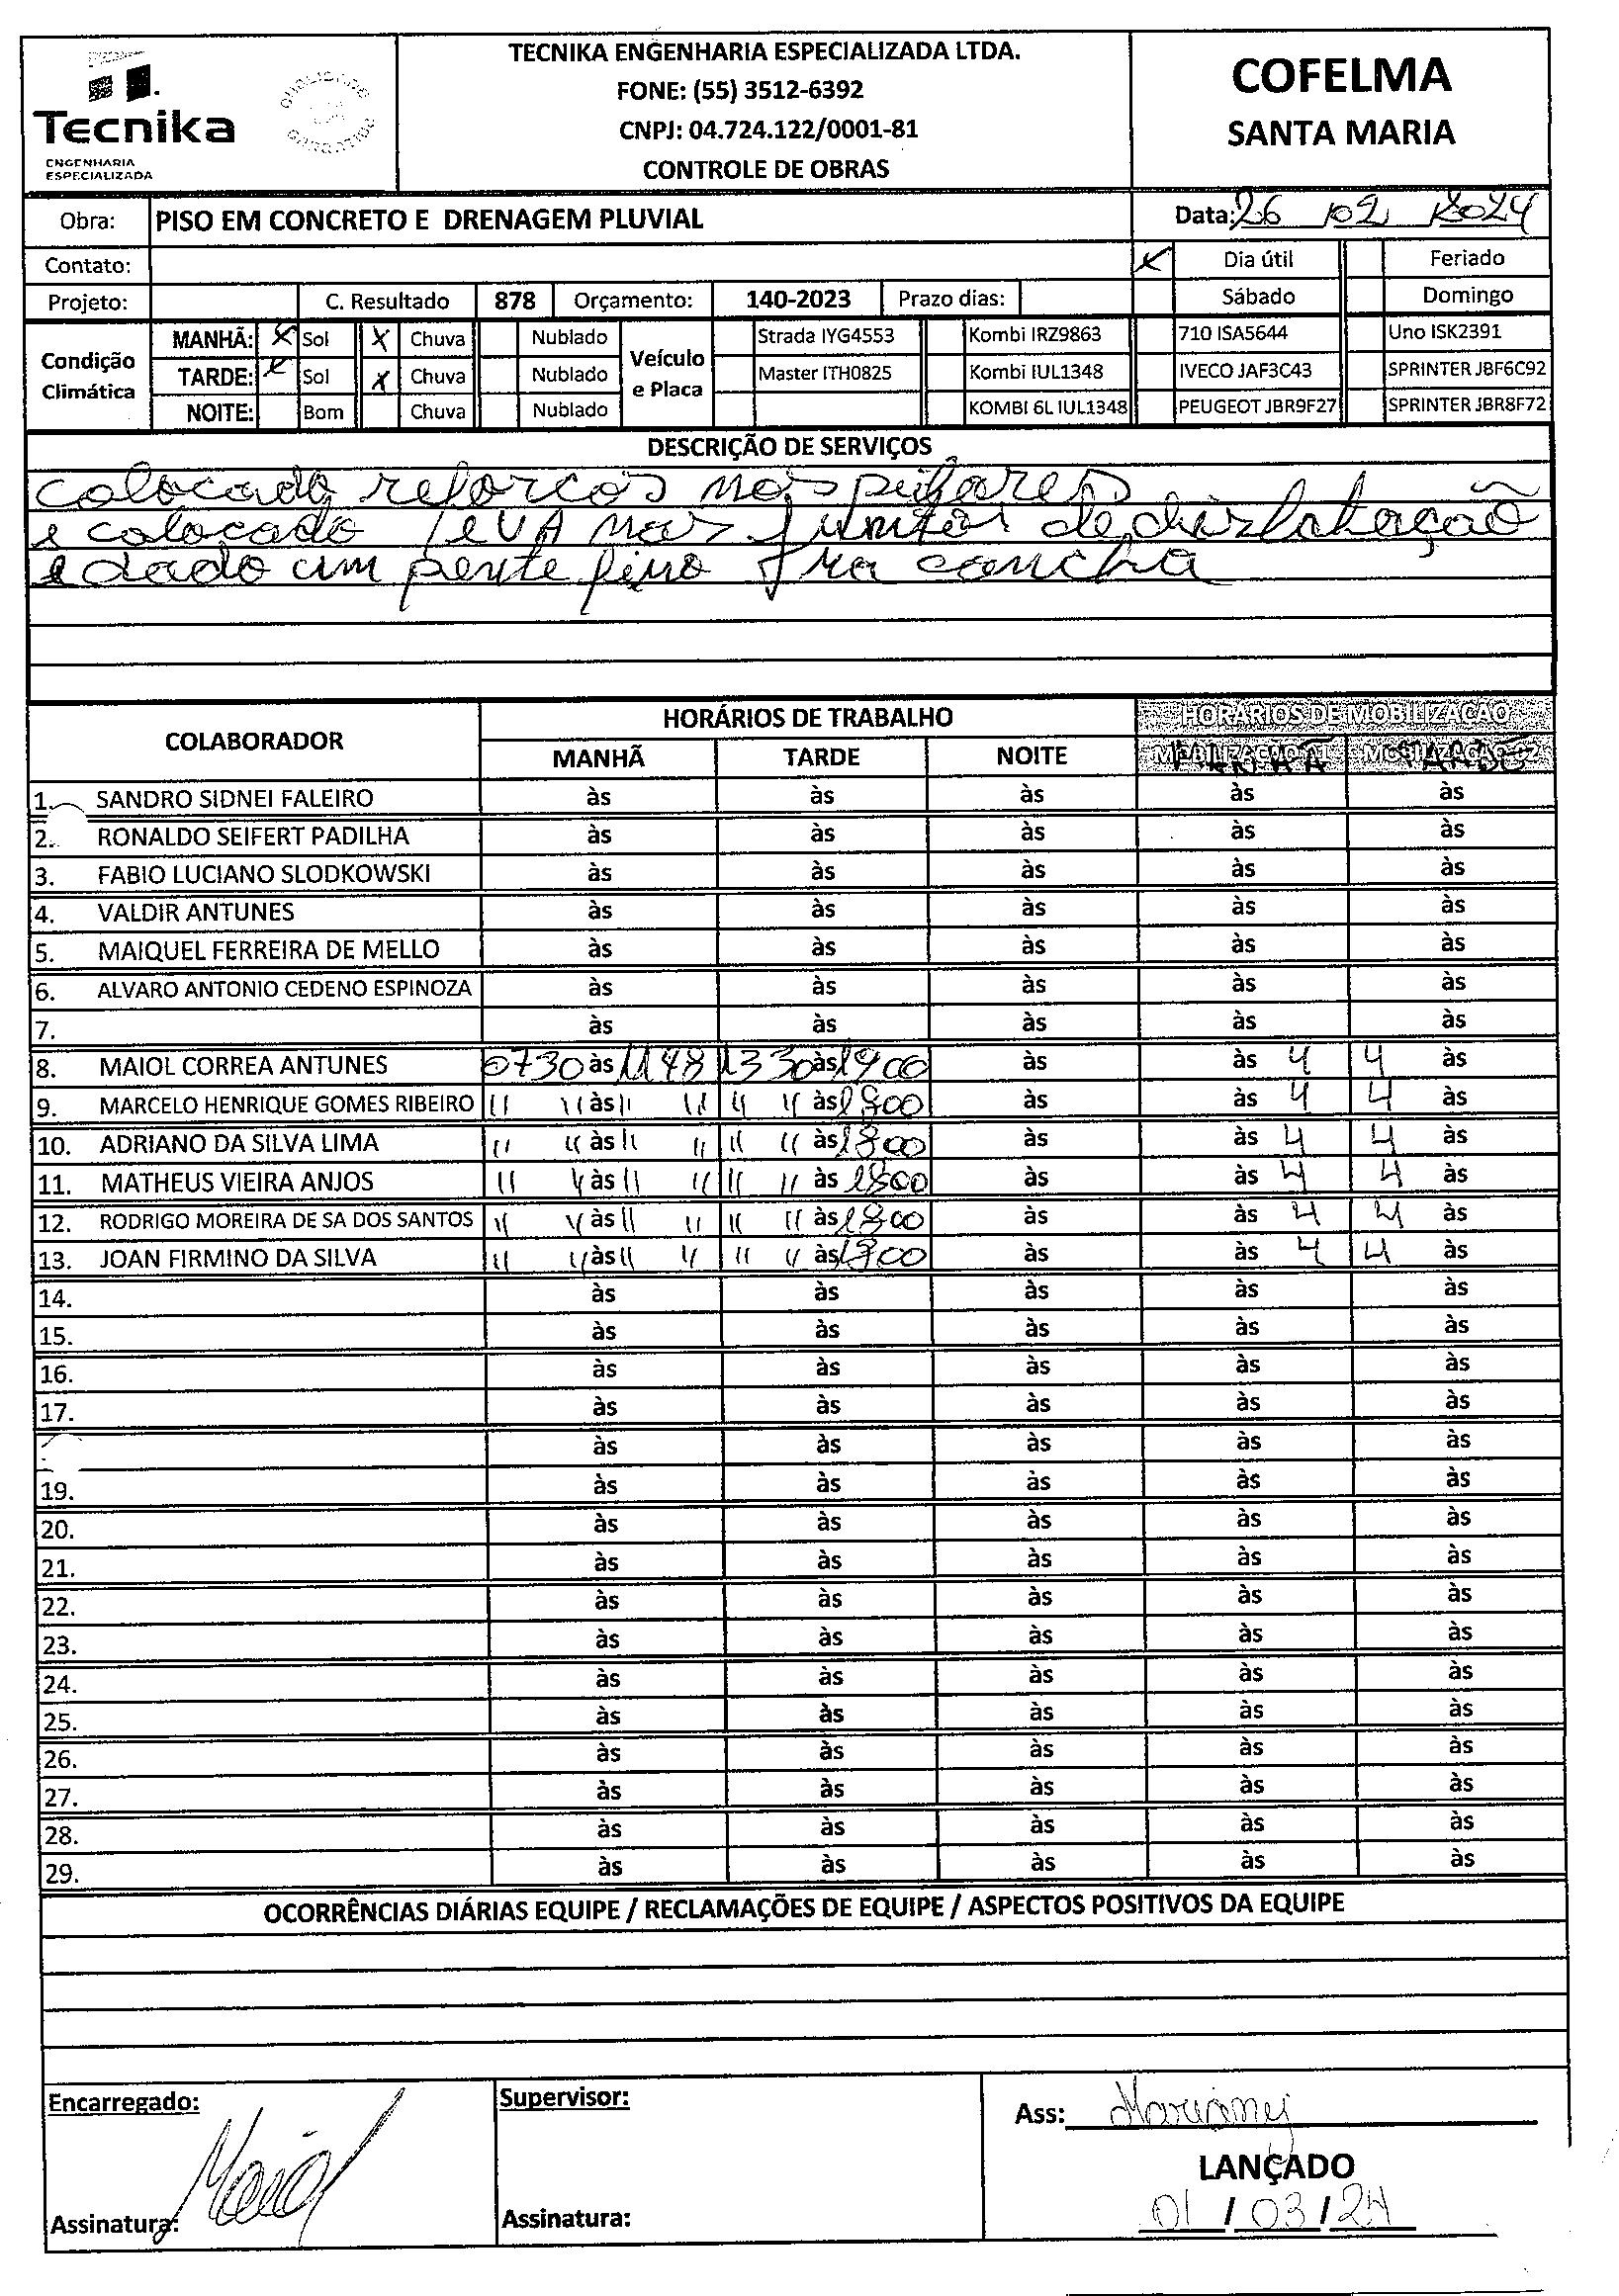 TECNIKA ENGENHARIA ESPECIALIZADA LTDA.
FONE: (55) 3512-6392
CNPJ: 04.724.122/0001-81
CONTROLE DE OBRAS
Tecnika
ENGENHARIA
ESPECIALIZADA
COFELMA
SANTA MARIA
Obra: PISO EM CONCRETO E DRENAGEM PLUVIAL Data: 26 / 02 / 2024
Contato: X Dia útil Feriado
Projeto: C. Resultado 878 Orçamento: 140-2023 Prazo dias: Sábado Domingo
Condição Climática
MANHÃ: X Sol X Chuva Nublado
TARDE: X Sol X Chuva Nublado
NOITE: Bom Chuva Nublado
Veículo e Placa
Strada IYG4553 Kombi IRZ9863 710 ISA5644 Uno ISK2391
Master ITH0825 Kombi IUL1348 IVECO JAF3C43 SPRINTER JBF6C92
KOMBI 6L IUL1348 PEUGEOT JBR9F27 SPRINTER JBR8F72
DESCRIÇÃO DE SERVIÇOS
colocado reforços nos pilares
e colocado EVA nas juntas de dislatação
e dado um pente fino na cancha
COLABORADOR HORÁRIOS DE TRABALHO HORÁRIOS DE MOBILIZAÇÃO
MANHÃ TARDE NOITE MANHÃ TARDE
1. SANDRO SIDNEI FALEIRO às às às às às
2. RONALDO SEIFERT PADILHA às às às às às
3. FABIO LUCIANO SLODKOWSKI às às às às às
4. VALDIR ANTUNES às às às às às
5. MAIQUEL FERREIRA DE MELLO às às às às às
6. ALVARO ANTONIO CEDENO ESPINOZA às às às às às
7. às às às às às
8. MAIOL CORREA ANTUNES 0730 às 1148 1330 às 1900 às às 4 4 às
9. MARCELO HENRIQUE GOMES RIBEIRO " " às " " " " às 1800 às às 4 4 às
10. ADRIANO DA SILVA LIMA " " às " " " " às 1800 às às 4 4 às
11. MATHEUS VIEIRA ANJOS " " às " " " " às 1800 às às 4 4 às
12. RODRIGO MOREIRA DE SA DOS SANTOS " " às " " " " às 1800 às às 4 4 às
13. JOAN FIRMINO DA SILVA " " às " " " " às 1800 às às 4 4 às
14. às às às às às
15. às às às às às
16. às às às às às
17. às às às às às
às às às às às
19. às às às às às
20. às às às às às
21. às às às às às
22. às às às às às
23. às às às às às
24. às às às às às
25. às às às às às
26. às às às às às
27. às às às às às
28. às às às às às
29. às às às às às
OCORRÊNCIAS DIÁRIAS EQUIPE / RECLAMAÇÕES DE EQUIPE / ASPECTOS POSITIVOS DA EQUIPE
Encarregado: Supervisor: Ass: Marianny
Maiol
LANÇADO
Assinatura: Assinatura: 01 / 03 / 24